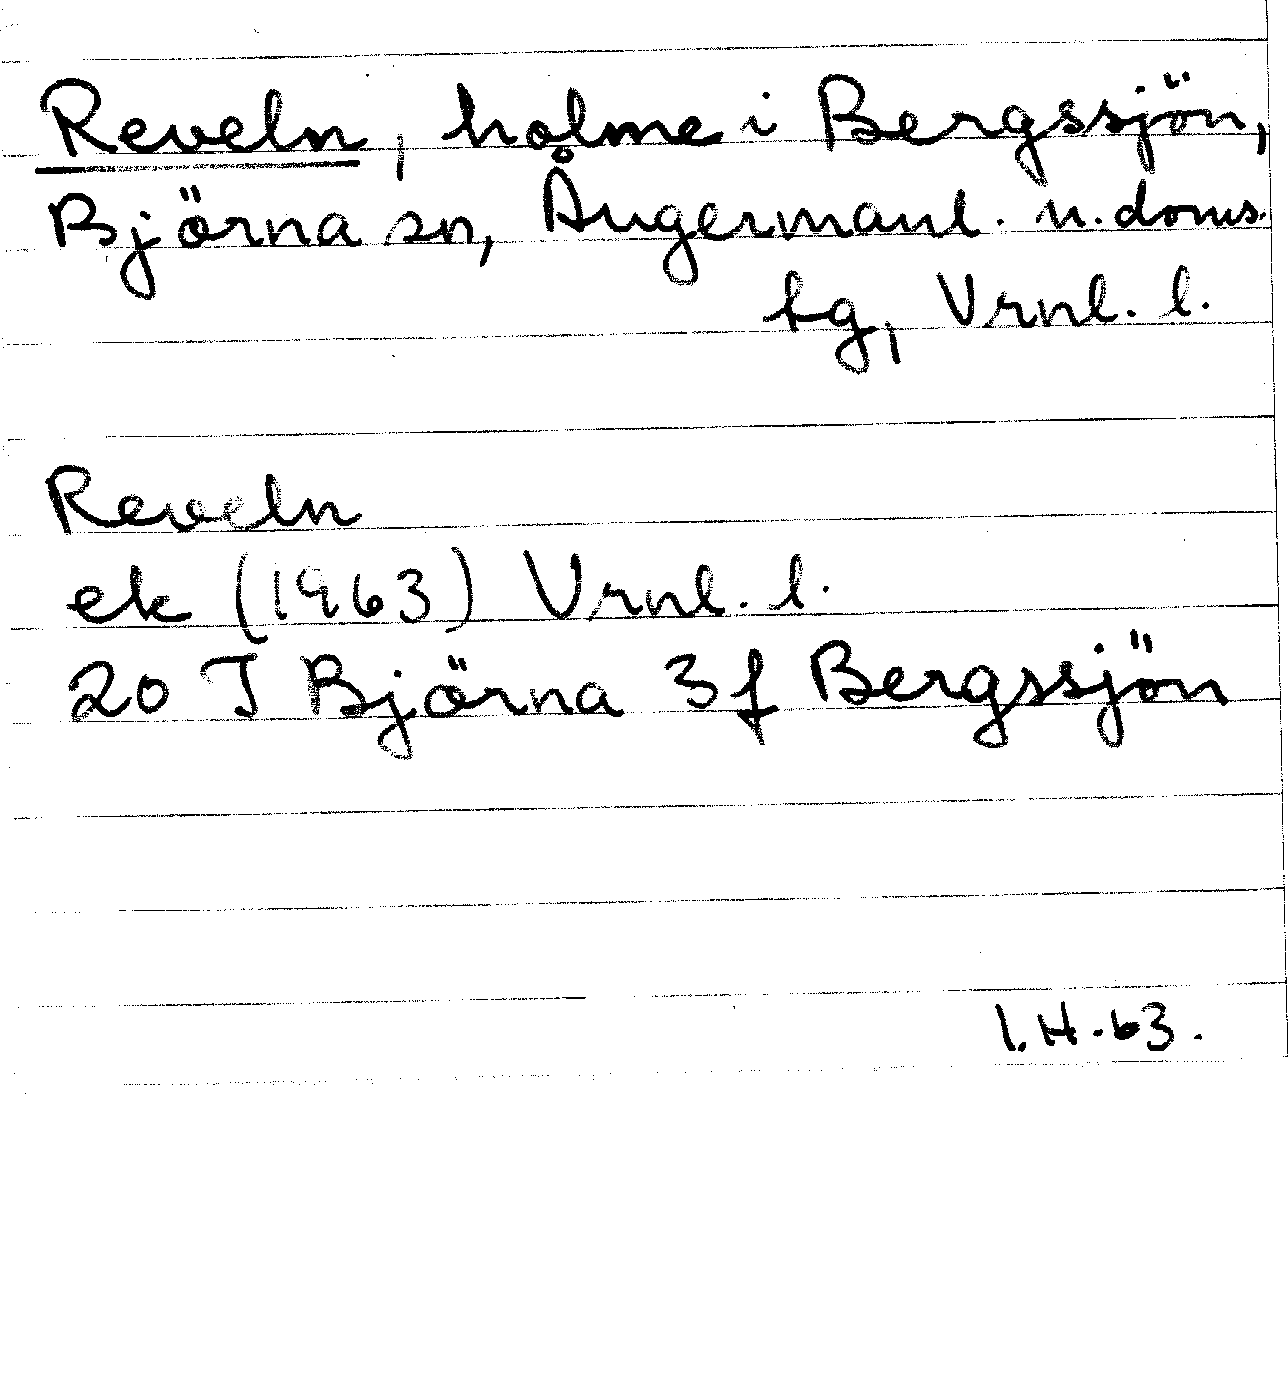 Reveln, holme i Bergssjön,
Björna sn, Ångermanl. n. doms.
sg, Vrnl. l.
Reveln
ek (1963) Vrnl. l.
20 J Björna 3 f Bergssjön
I.H.63.